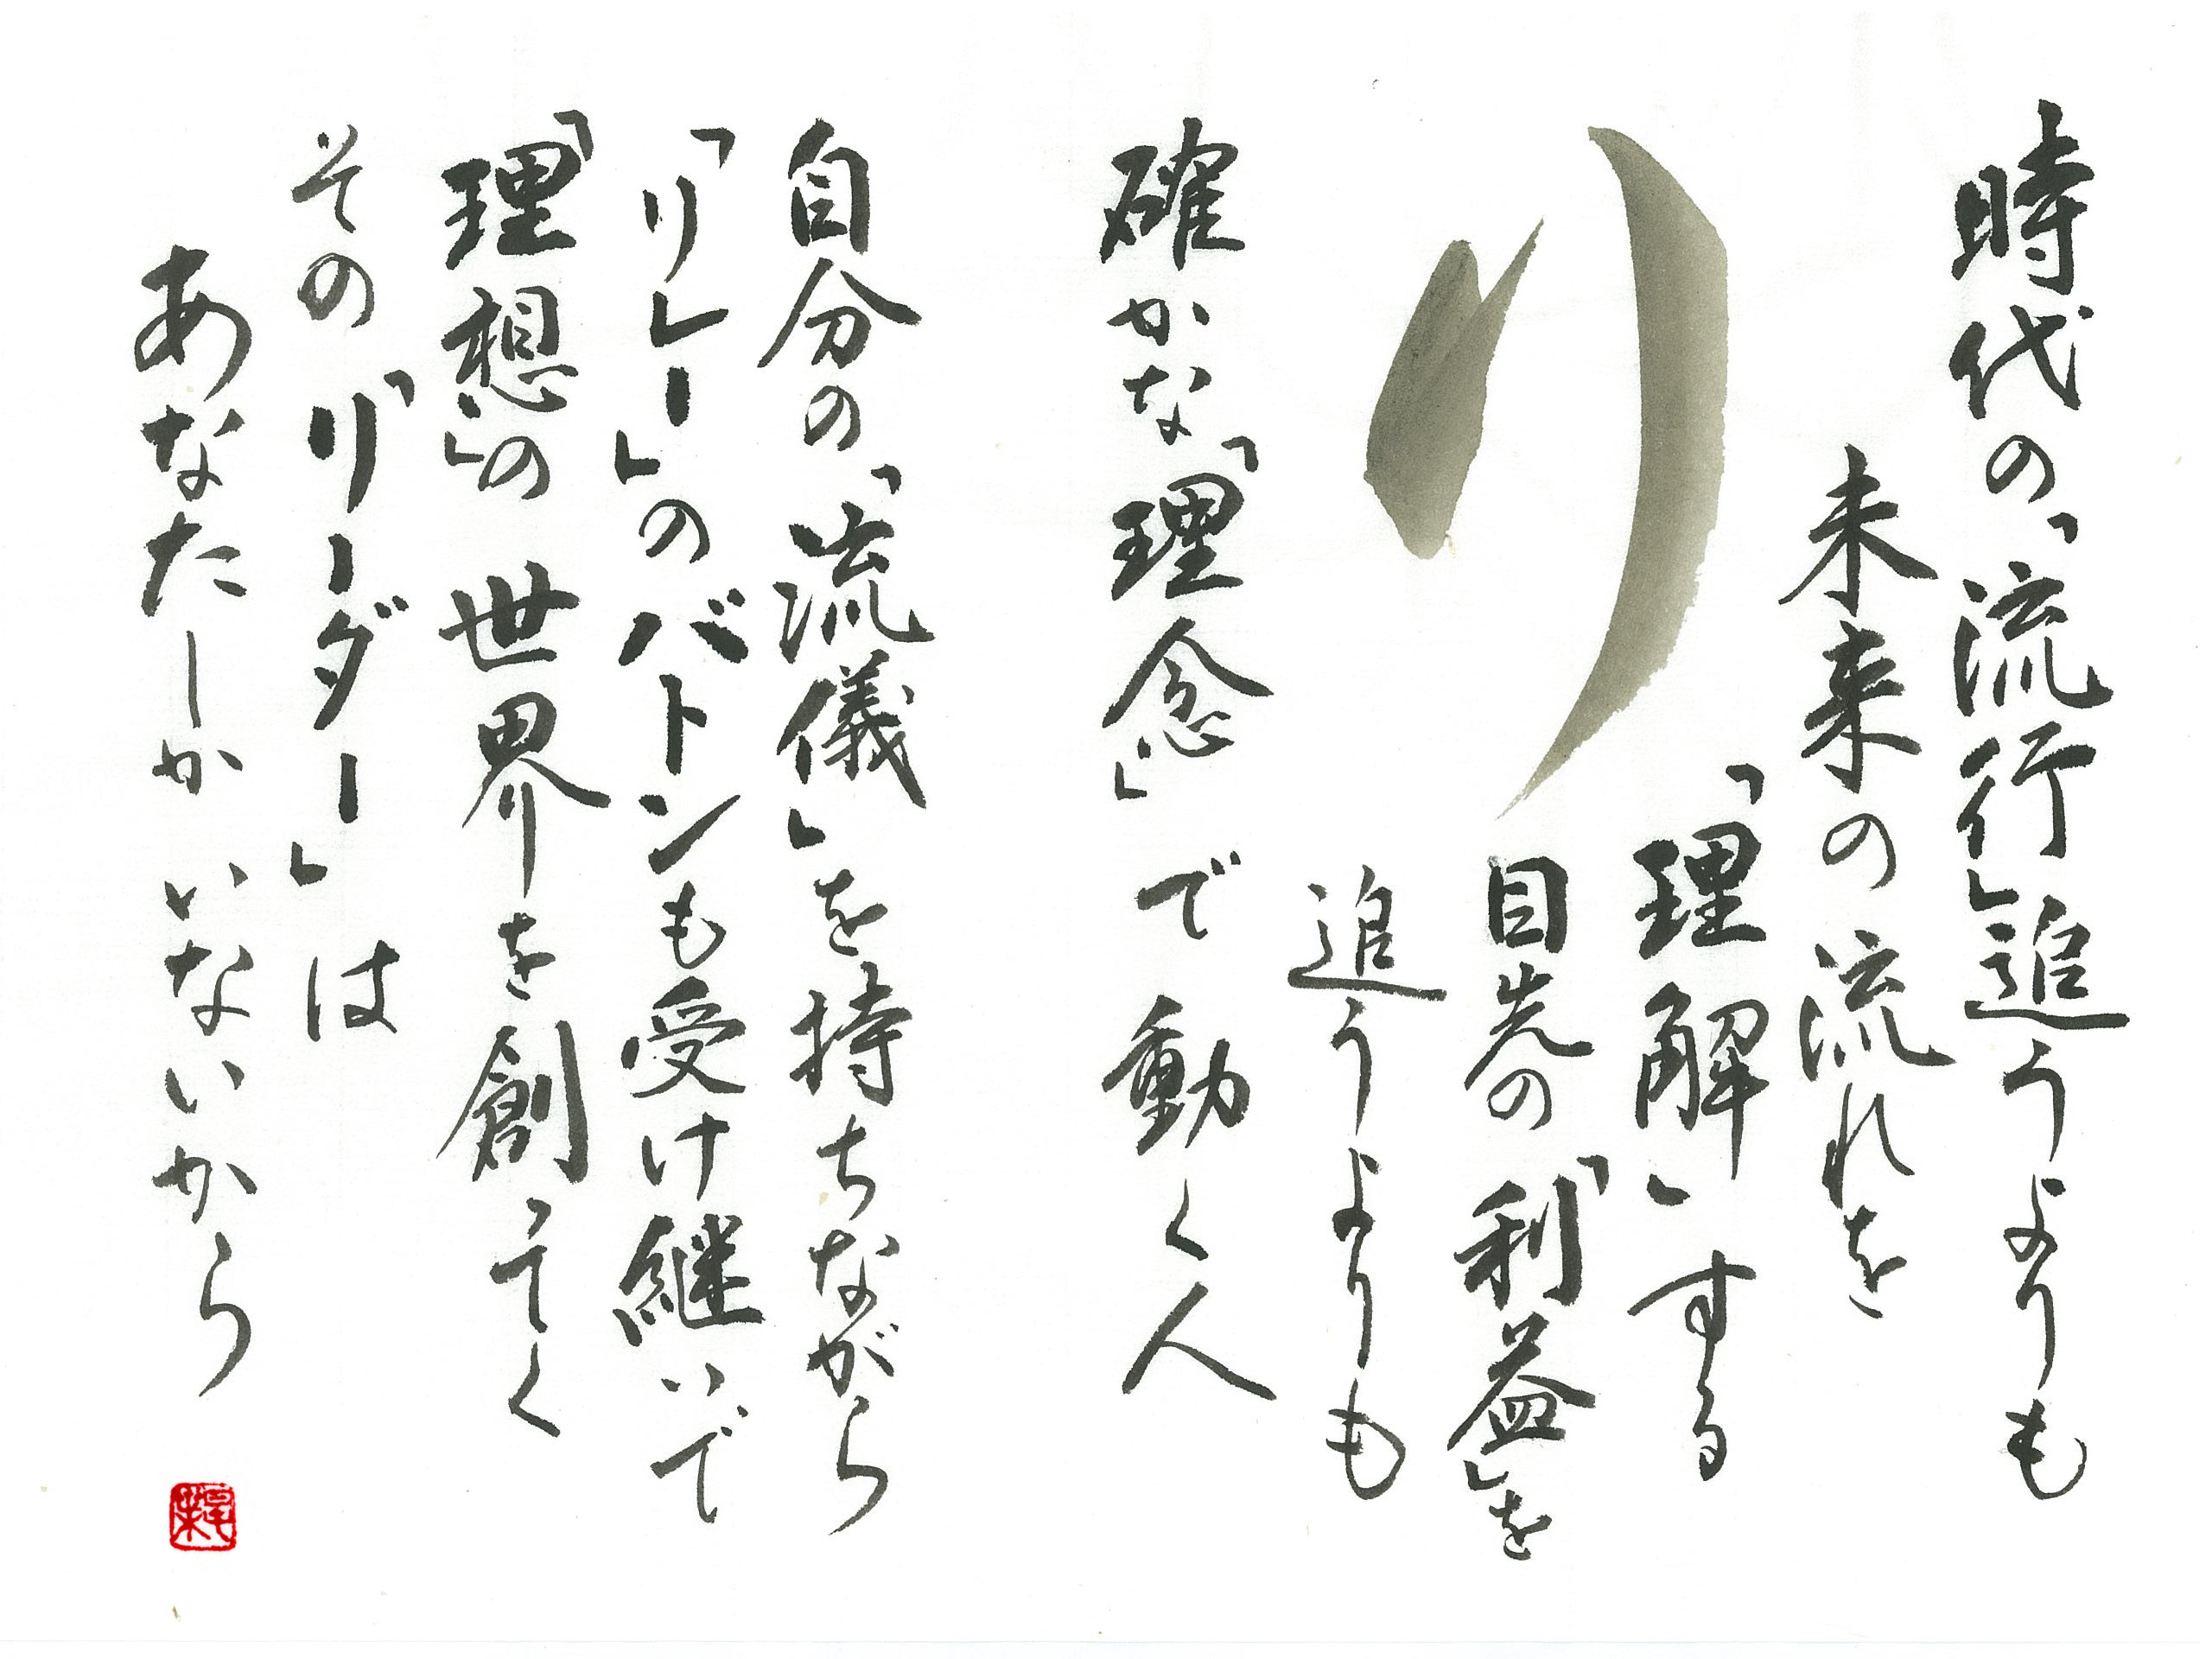 時代の「流行」追うよりも
未来の流れを
「理解」する
り
目先の「利益」を
追うよりも
確かな「理念」で動く人
自分の「流儀」を持ちながら
「リレー」のバトンも受け継いで
「理想」の世界を創ってく
その「リーダー」は
あなたしかいないから